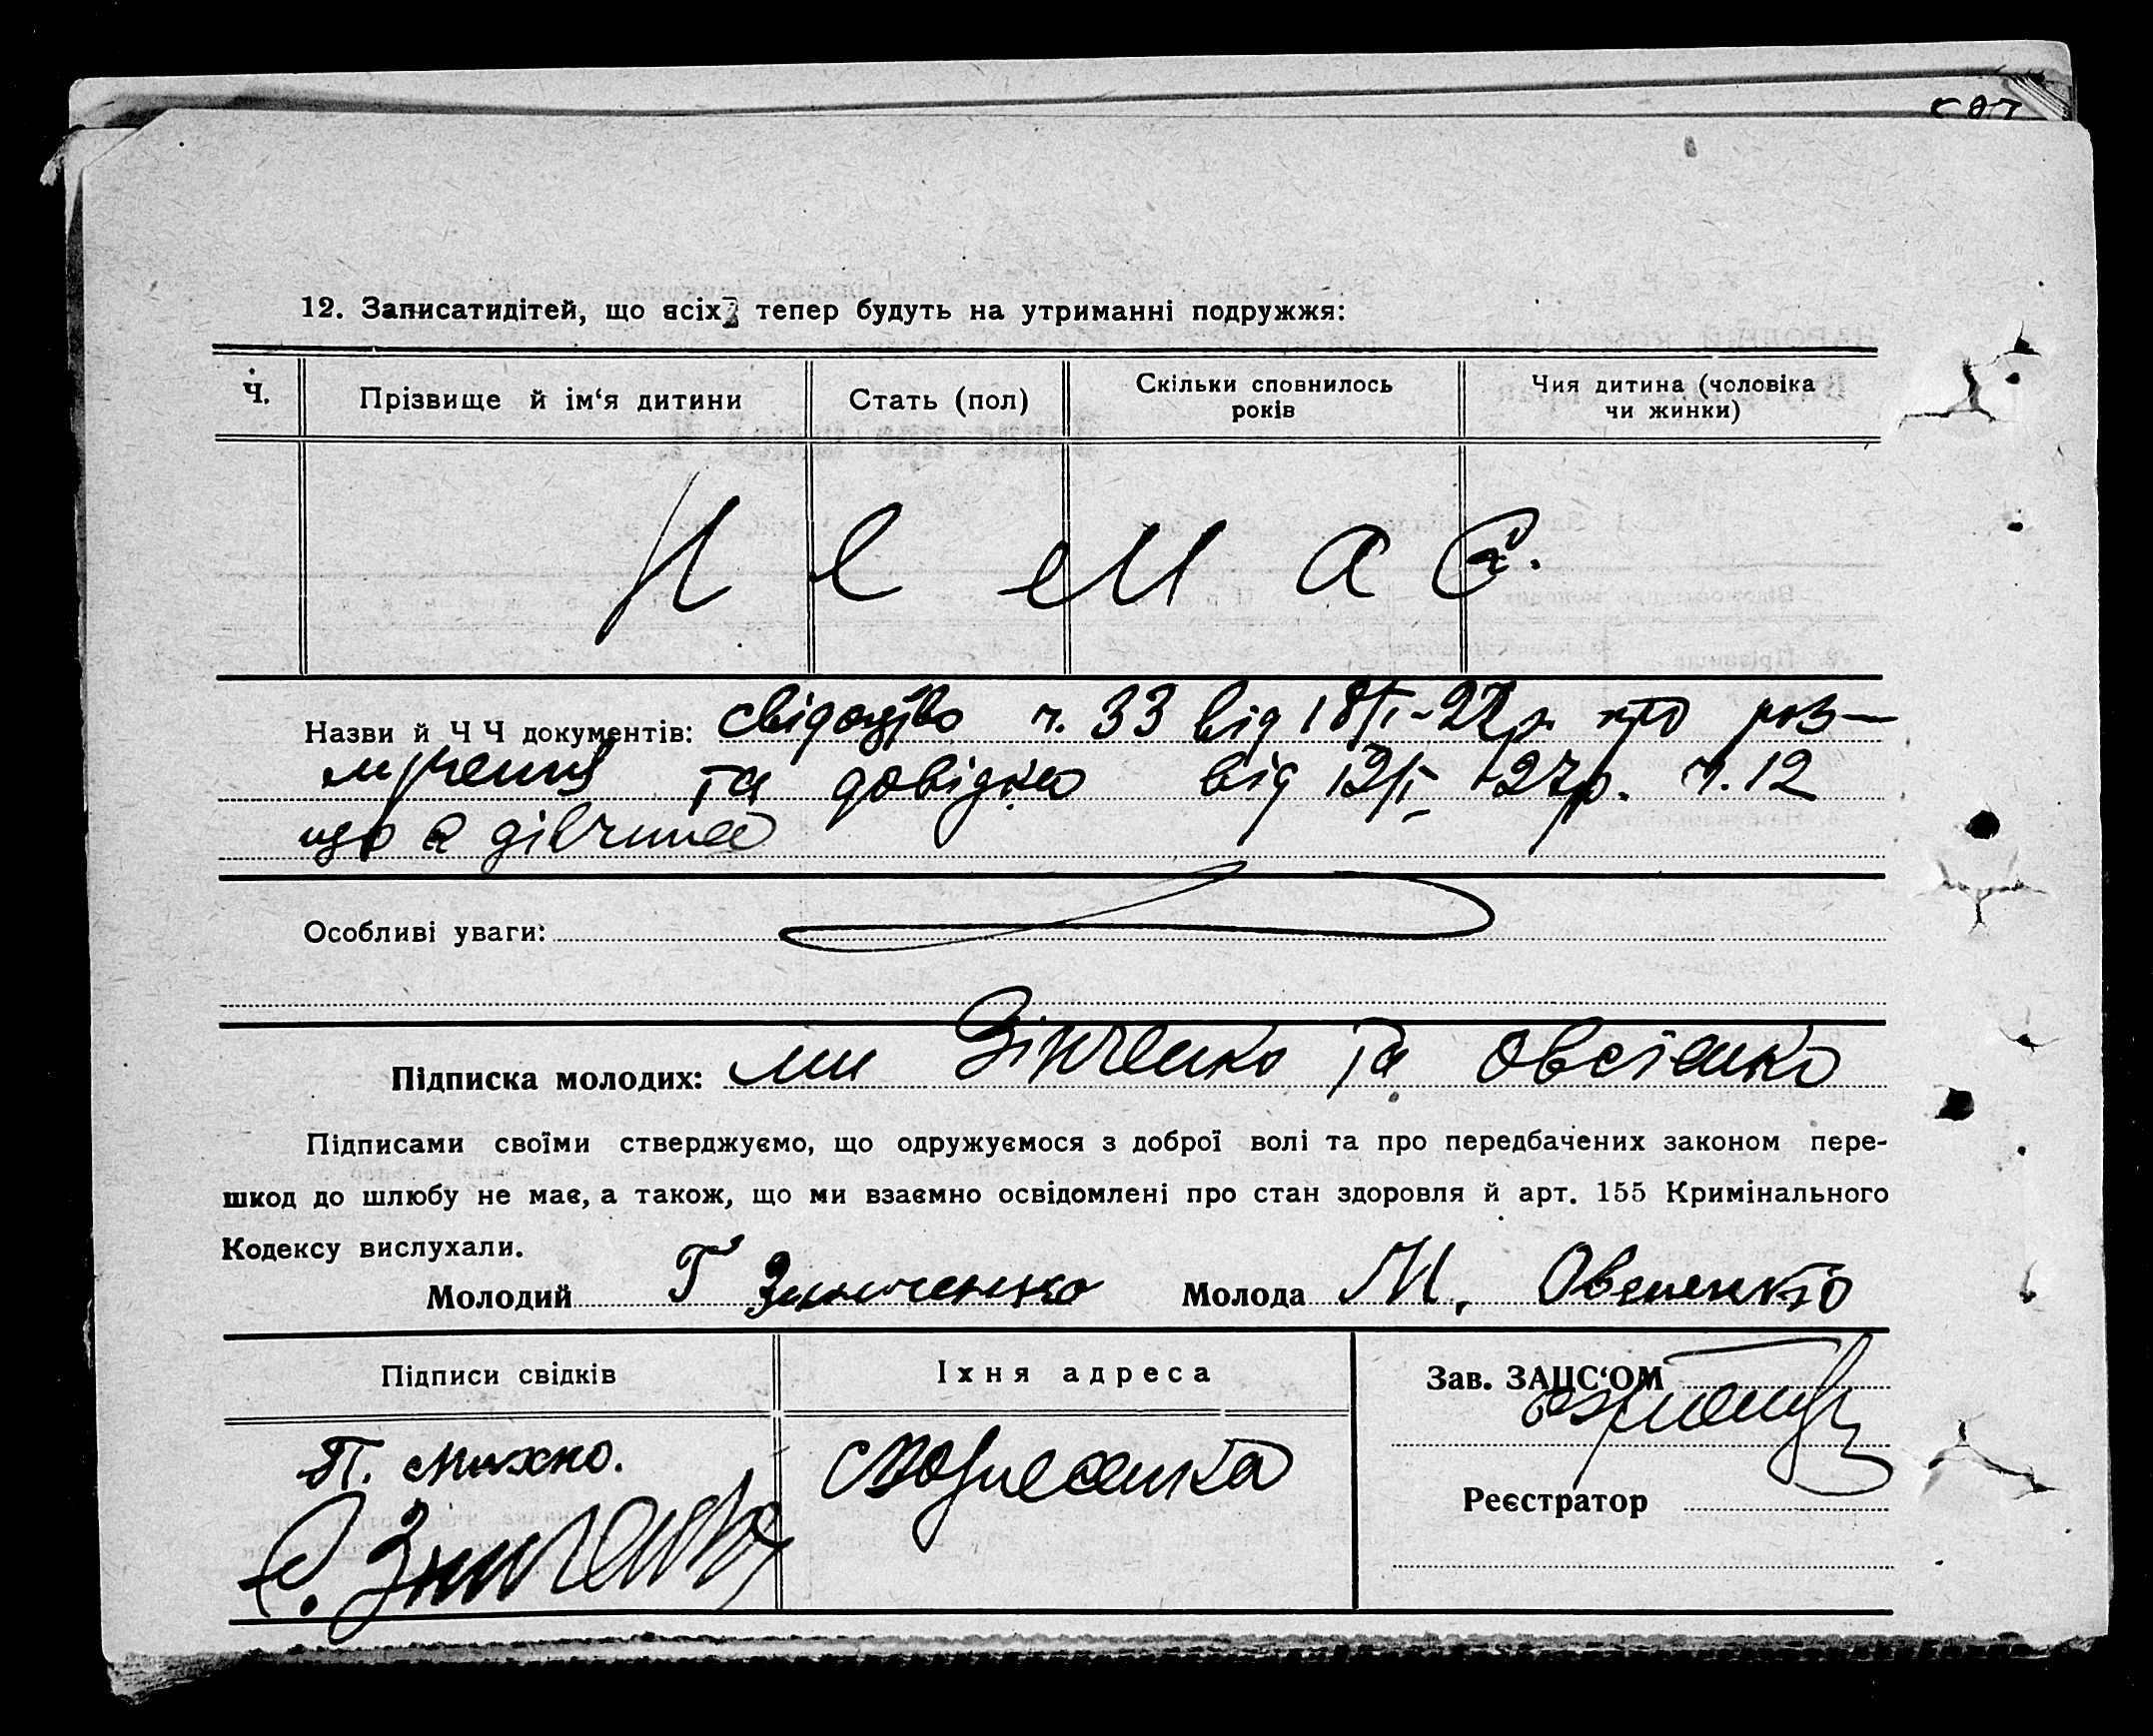 12. Записатидітей, що всіх тепер будуть на утриманні подружжя:
Ч. Прізвище й ім‘я дитини Стать (пол) Скільки сповнилось років Чия дитина (чоловіка чи жинки)
Н е м а є.
Назви й Ч Ч документів: свідоцтво ч. 33 від 18/І-27р. про роз-
лучення та довідка від 12/І 27р. ч. 12
що є дівчина
Особливі уваги:
Підписка молодих: ми Зінченко та Овсієнко
Підписами своїми стверджуємо, що одружуємося з доброї волі та про передбачених законом пере-
шкод до шлюбу не має, а також, що ми взаємно освідомлені про стан здоровля й арт. 155 Кримінального
Кодексу вислухали.
Молодий Г Зинченко Молода М. Овсиенко
Підписи свідків Їхня адреса Зав. ЗАЦС‘ОМ
П. Махно.
Реєстратор